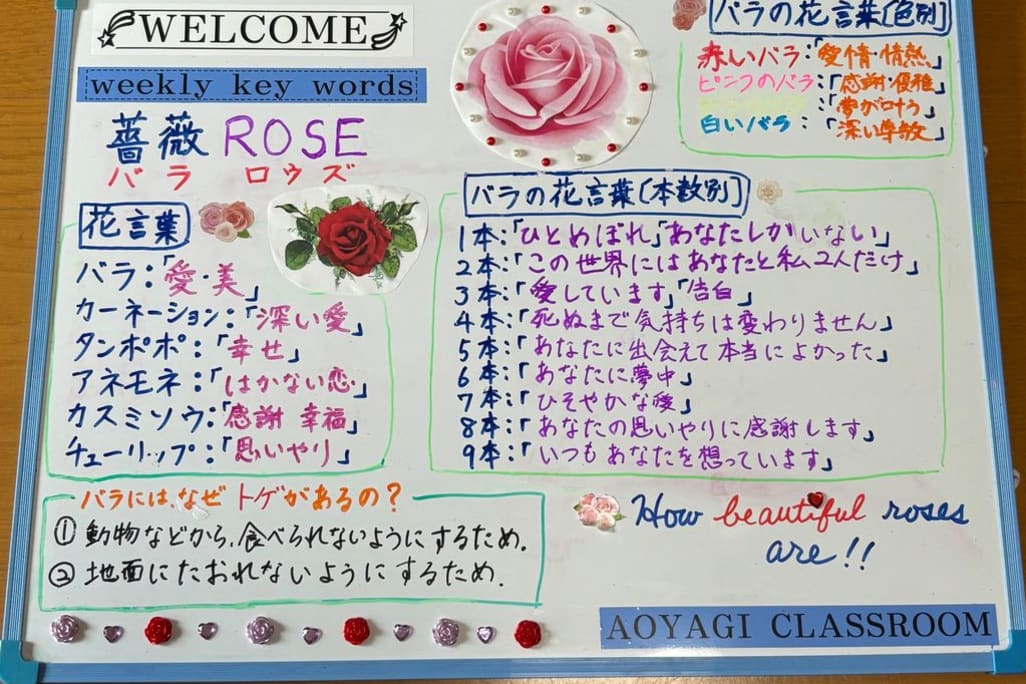 WELCOME
weekly key words
薔薇 ROSE
バラ ロウズ
花言葉
バラ:「愛・美」
カーネーション:「深い愛」
タンポポ:「幸せ」
アネモネ:「はかない恋」
カスミソウ:「感謝 幸福」
チューリップ:「思いやり」
バラの花言葉〔色別〕
赤いバラ:「愛情・情熱」
ピンクのバラ:「感謝・優雅」
:「夢が叶う」
白いバラ:「深い尊敬」
バラの花言葉〔本数別〕
1本:「ひとめぼれ」「あなたしかいない」
2本:「この世界にはあなたと私2人だけ」
3本:「愛しています」「告白」
4本:「死ぬまで気持ちは変わりません」
5本:「あなたに出会えて本当によかった」
6本:「あなたに夢中」
7本:「ひそやかな愛」
8本:「あなたの思いやりに感謝します」
9本:「いつもあなたを想っています」
バラには、なぜトゲがあるの?
① 動物などから、食べられないようにするため.
② 地面にたおれないようにするため.
How beautiful roses
are!!
AOYAGI CLASSROOM